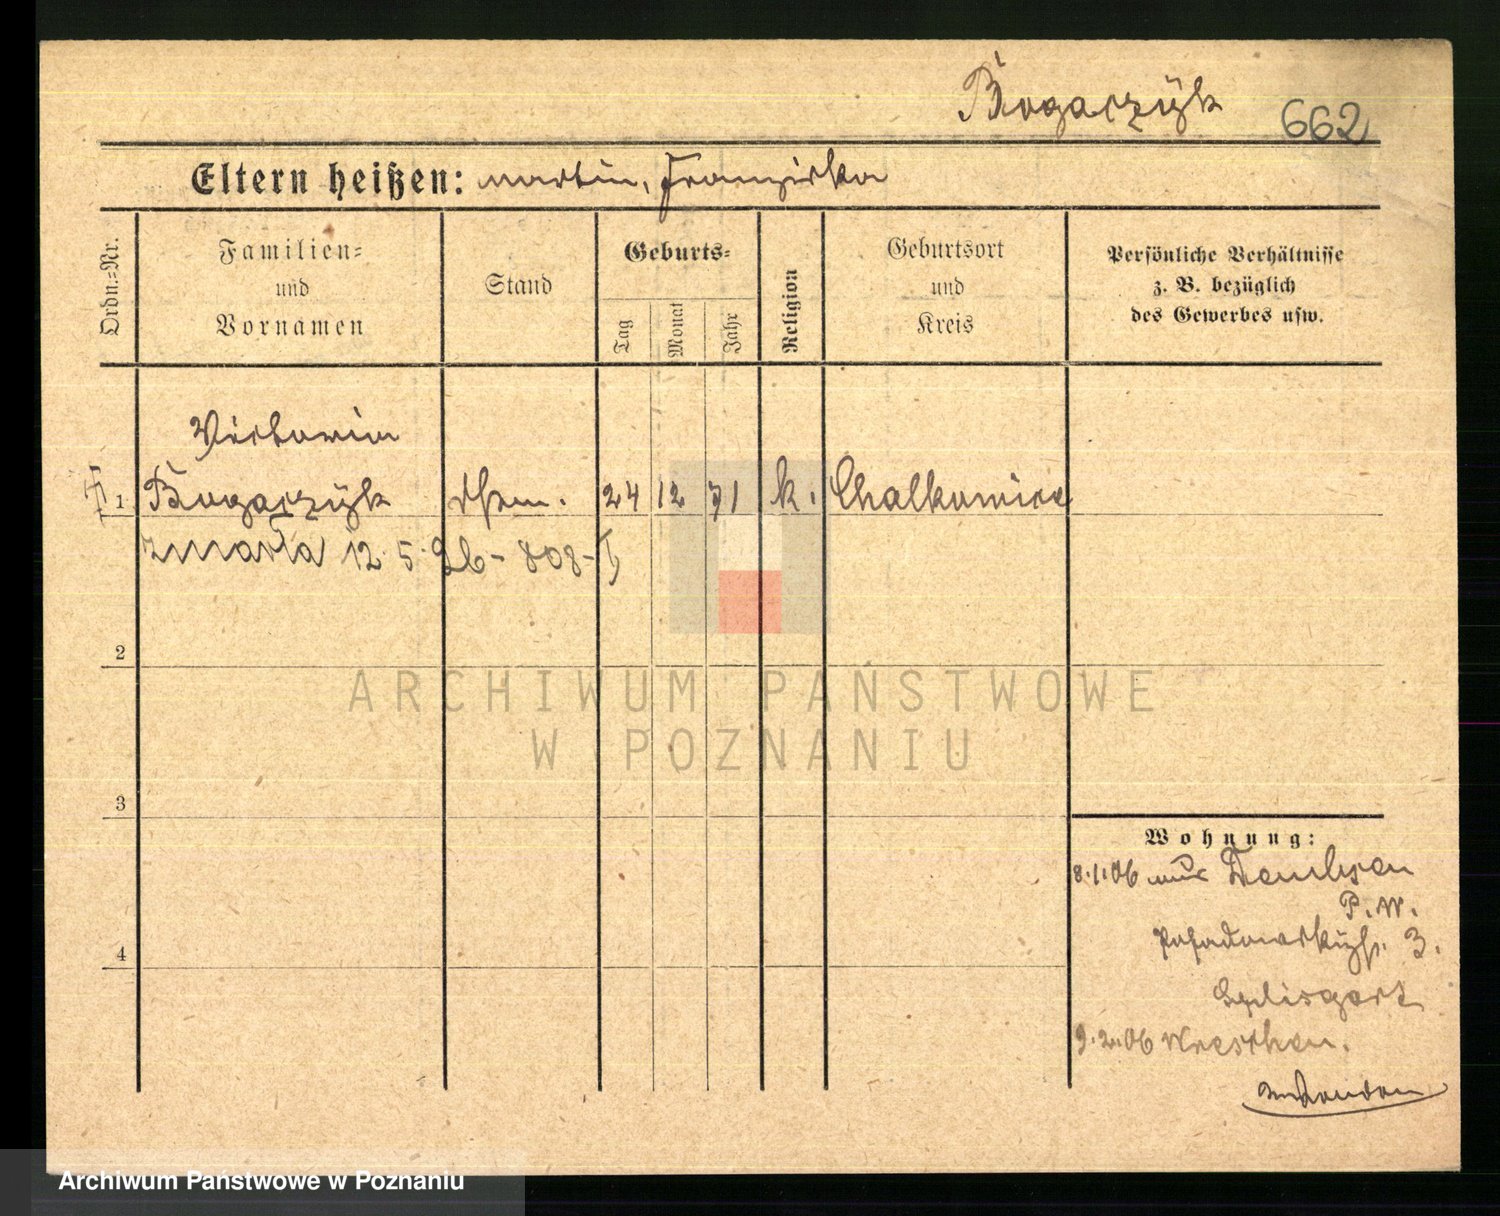 Bogaczyk 662
Eltern heißen: Martin, Franziska
Ordn.-Nr.
Familien-
und
Vornamen
Stand
Geburts-
Tag
Monat
Jahr
Religion
Geburtsort
und
Kreis
Persönliche Verhältnisse
z. B. bezüglich
des Gewerbes usw.
Victoria
1 Bogaczyk 24 12 71 k. Chalkowice
zmarła 12.5.26-808-
2
ARCHIWUM PAŃSTWOWE
W POZNANIU
3
Wohnung:
8.1.06 aus Dembsen
P.W.
3.
4
9.2.06 Wreschen.
Archiwum Państwowe w Poznaniu